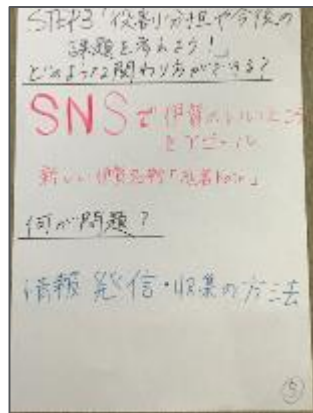 STEP3「役割分担や今後の
課題を考えよう!」
どのような関わり方ができる?
SNSで伊賀のいいところ
をアピール
新しい伊賀
何が問題?
情報発信・収集の方法
⑤